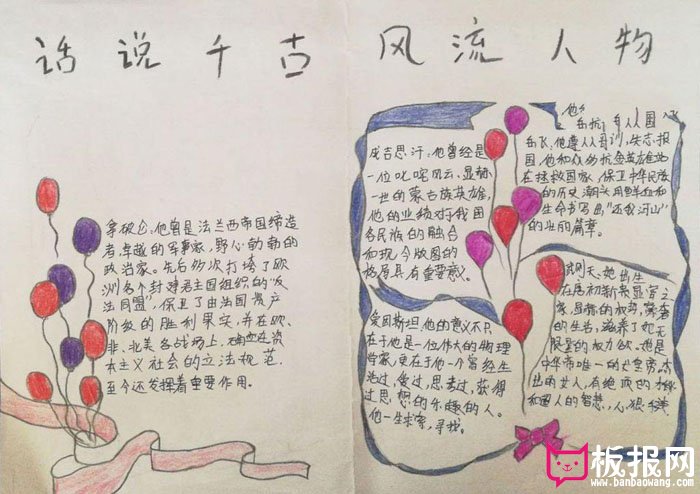 话说千古风流人物
拿破仑,他曾是法兰西帝国缔造
者,卓越的军事家,野心勃勃的
政治家。先后多次打垮了欧
洲各个封建君主国组织的“反
法同盟”,保卫了由法国资产
阶级的胜利果实,并在欧、
非、北美各战场上,
本主义社会的立法规范,
至今还发挥着重要作用。
成吉思汗:他曾经是
一位叱咤风云、显赫
一世的蒙古族英雄,
他的业绩对于我国
各民族的融合
和现今版图的
格局具有重要意义。
爱因斯坦,他的意义不只
在于他是一位伟大的物理
学家,更在于他一个曾经生
活过,爱过,思考过,获得
过思想的乐趣的人。
他一生求索,寻找。
他
岳飞,他遵从母训,
国,他和众多抗金英雄
在拯救国家、保卫中华民族
的历史潮头用鲜血和
生命书写出“还我河山”
的壮丽篇章。
武则天:她出生
在唐初新贵显宦之
家,显赫的权势,豪奢
的生活,滋养了她无
限量的权力欲。她是
中华帝唯一的
出的女人,有绝顶的
和国人的智慧,心狠
板报网
www.banbaowang.com